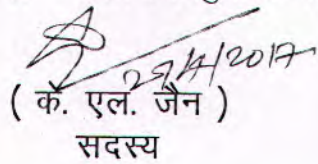 29/4/2017
( के. एल. जैन )
सदस्य